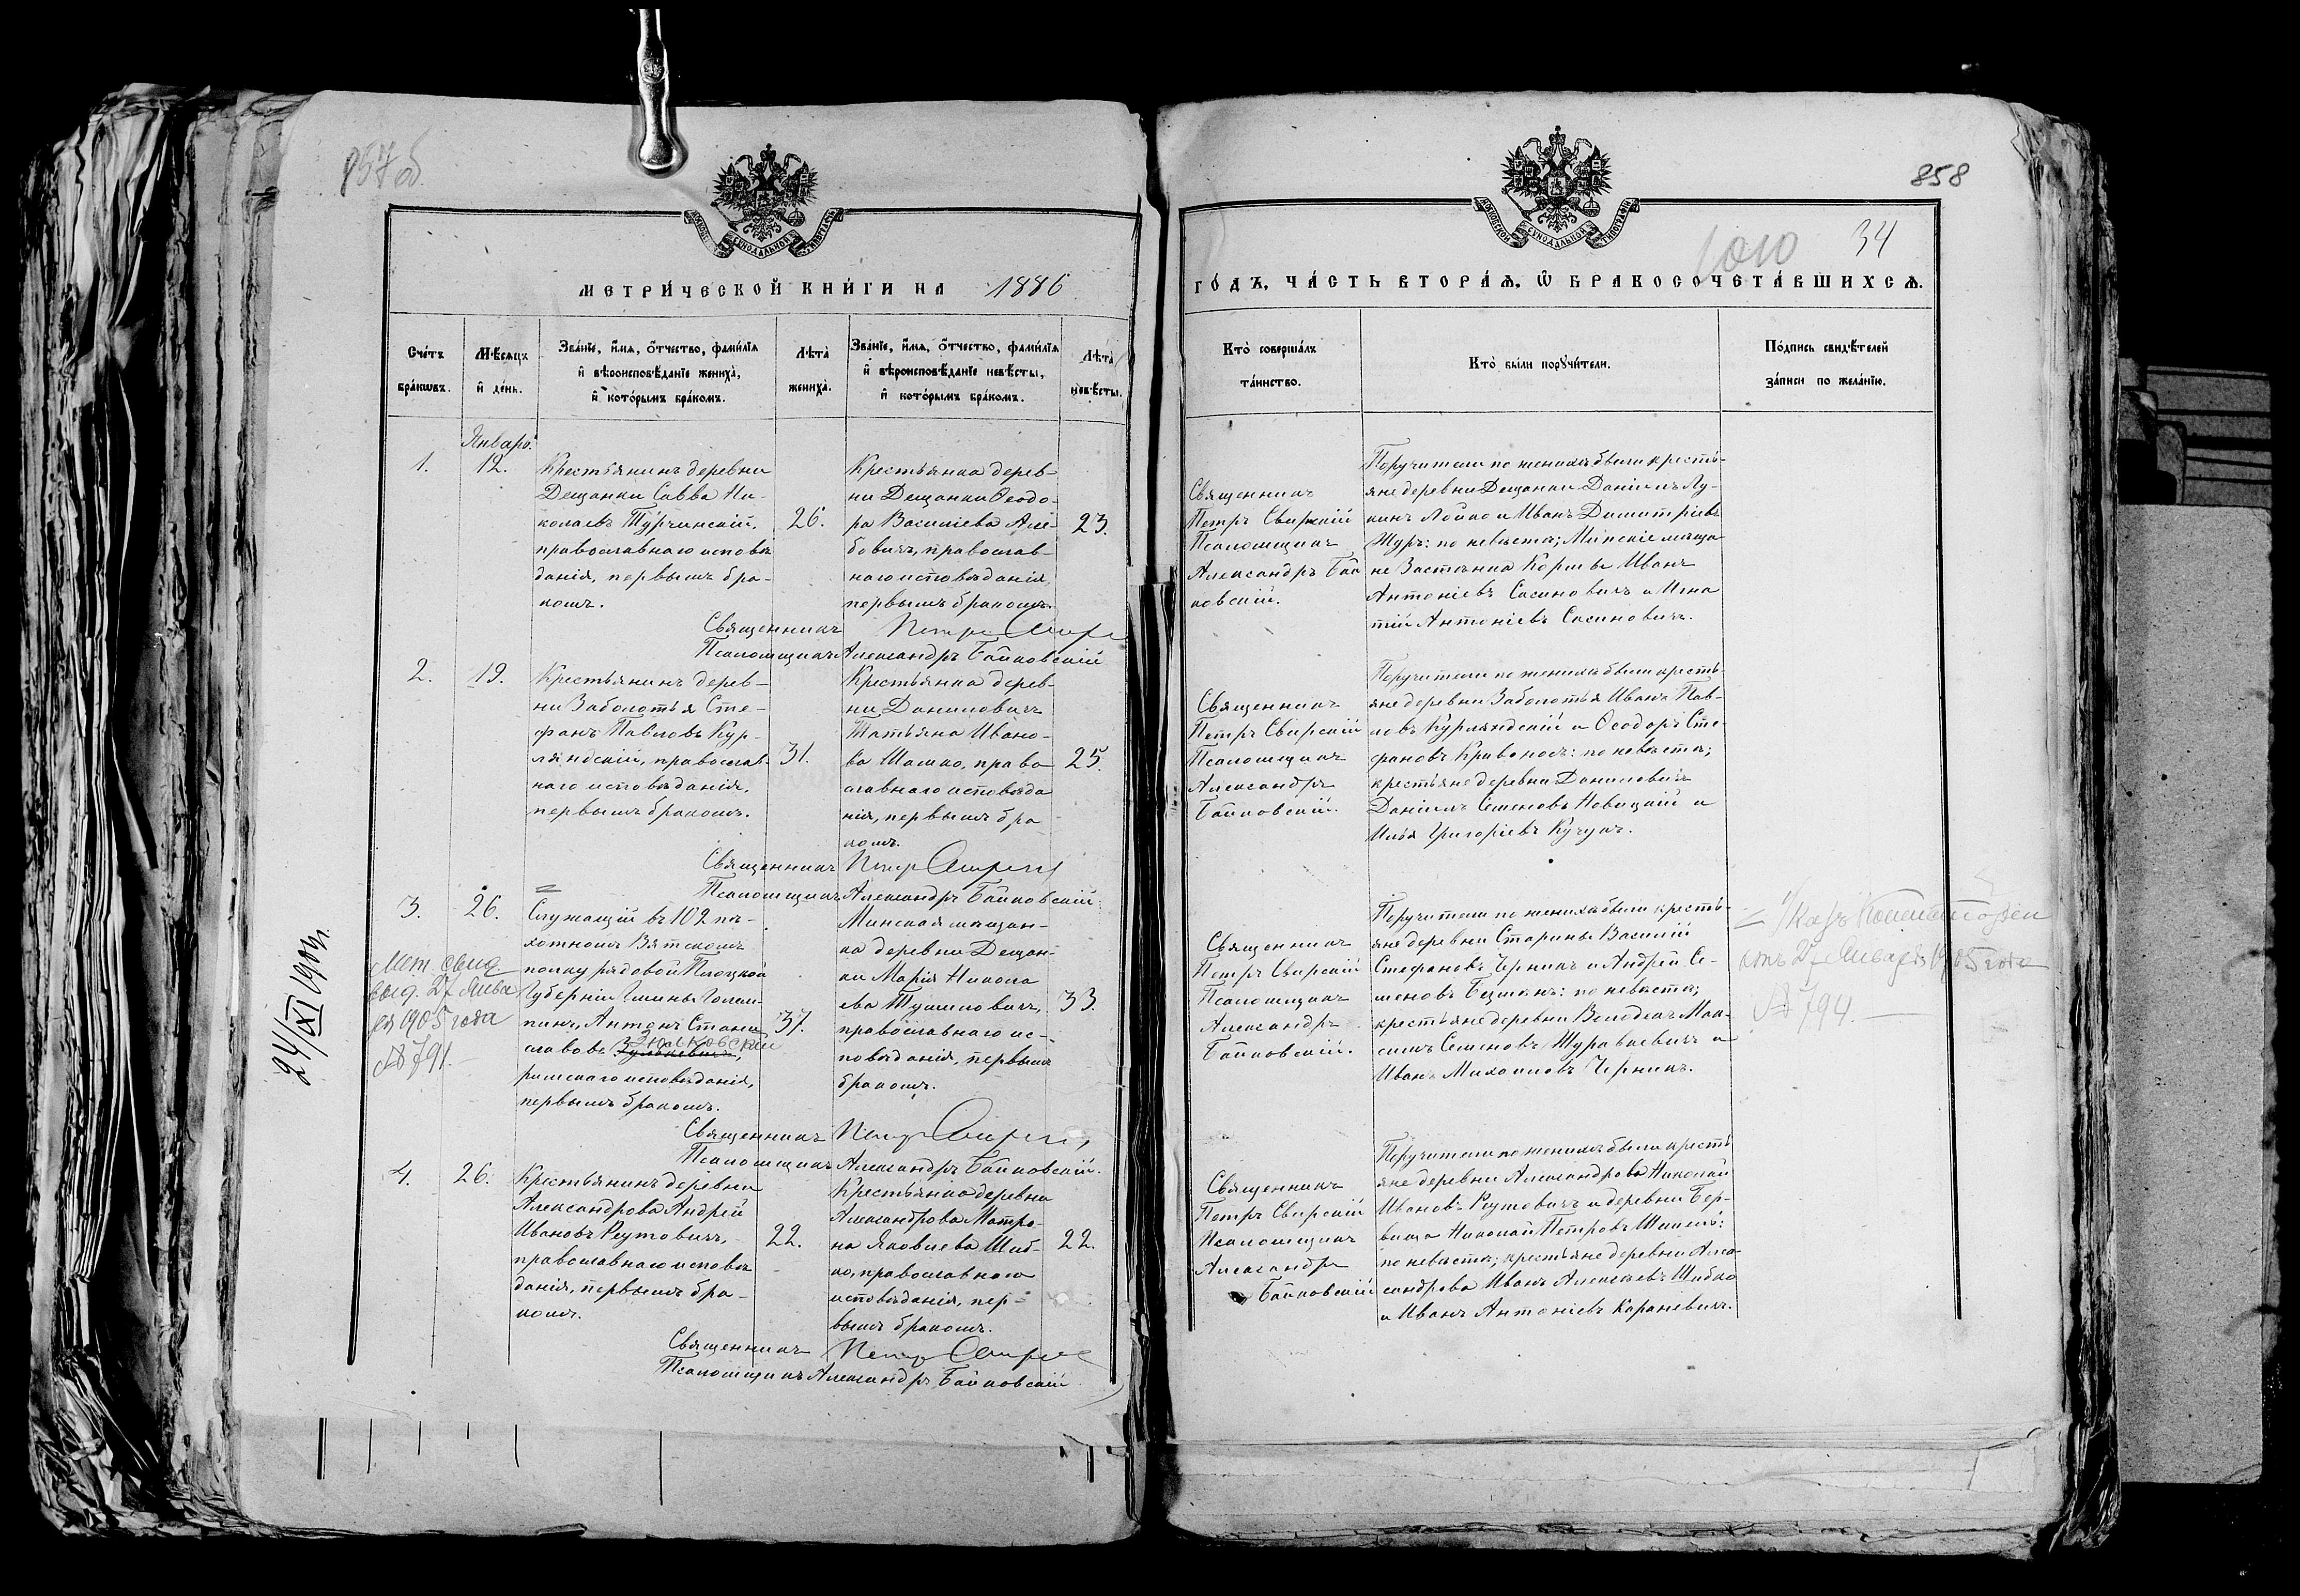 857 об.
МОСКОВСКОЙ СѴНОДАЛЬНОЙ ТИПОГРАФІИ
МЕТРИ́ЧЕСКОЙ КНИ́ГИ НА 1886
Сче́тъ бра́кѡвъ.
Мѣ́сяцъ и҆ де́нь.
Зва́нїе, и҆́мя, ѻ҆́тчество, фами́лїя
и҆ вѣроисповѣ́данїе жениха̀,
и҆ кото́рымъ бра́комъ.
Лѣта̀ жениха̀.
Зва́нїе, и҆́мя, ѻ҆́тчество, фами́лїя
и҆ вѣроисповѣ́данїе невѣ́сты,
и҆ кото́рымъ бра́комъ.
Лѣта̀ невѣ́сты.
Январь.
1.
12.
Крестьянинъ деревни
Дещанки Савва Ни-
колаевъ Турчинскій,
православнаго исповѣ
данія, первымъ бра-
комъ.
26.
Крестьянка дерев-
ни Дещанки Ѳеодо-
ра Василіева Але-
бовичъ, православ-
наго исповѣданія,
первымъ бракомъ.
23.
Священникъ Петръ
Псаломщикъ Александръ Байковскій
2.
19.
Крестьянинъ дерев-
ни Заболотья Сте-
фанъ Павловъ Кур-
ляндскій, православ-
наго исповѣданія,
первымъ бракомъ.
31.
Крестьянка дерев-
ни Даниловичъ
Татьяна Ивано-
ва Шашко, право
славнаго исповѣда
нія, первымъ бра
комъ.
25.
Священникъ Петръ
Псаломщикъ Александръ Байковскій
3.
26.
Мет. свид.
выд. 27 Янва
ря 1905 года
№ 791.
24/XI 1904 г.
Служащій въ 102 пѣ-
хотномъ Вятскомъ
полку рядовой Плоцкой
Губерніи Гмины
Антонъ Стани
славовъ
римскаго исповѣданія,
первымъ бракомъ.
37.
Минская мѣщан-
ка деревни Дещан-
ки Марія Никола
ева Тумиловичъ,
православнаго ис-
повѣданія, первымъ
бракомъ.
33.
Священникъ Петръ
Псаломщикъ Александръ Байковскій.
4.
26.
Крестьянинъ деревни
Александрова Андрей
Ивановъ Реутовичъ,
православнаго исповѣ
данія, первымъ бра-
комъ.
22.
Крестьянка деревни
Александрова Матро-
на Яковлева Шиб-
ко, православнаго
исповѣданія, пер-
вымъ бракомъ.
22.
Священникъ Петръ
Псаломщикъ Александръ Байковскій
858
34
1010
МОСКОВСКОЙ СѴНОДАЛЬНОЙ ТИПОГРАФІИ
ГО́ДЪ, ЧА́СТЬ ВТОРА́Я, Ѡ҆ БРАКОСОЧЕТА́ВШИХСЯ.
Кто̀ соверша́лъ та́инство.
Кто̀ бы́ли порꙋчи́тели.
По́дпись свидѣ́телей за́писи по жела́нїю.
Священникъ
Петръ Свирскій
Псаломщикъ
Александръ Бай
ковскій.
Поручители по женихѣ были кресть-
яне деревни Дещанки Даніилъ Лу-
кинъ Лойко и Иванъ Димитріевъ
Щуръ: по невѣстѣ; Минскіе мѣща
не Застѣнка Коршы Иванъ
Антоніевъ Сасиновичъ и Игна
тій Антоніевъ Сасиновичъ.
Священникъ
Петръ Свирскій
Псаломщикъ
Александръ
Байковскій.
Поручители по женихѣ были кресть-
яне деревни Заболотья Иванъ Пав-
ловъ Курляндскій и Ѳеодоръ Сте-
фановъ Кривоносъ: по невѣстѣ;
крестьяне деревни Даниловичъ
Даніилъ Семеновъ Новицкій и
Илья Григоріевъ Кучукъ.
Священникъ
Петръ Свирскій
Псаломщикъ
Александръ
Байковскій.
Поручители по женихѣ были кресть-
яне деревни Старины Василій
Стефановъ Черникъ и Андрей Се-
меновъ Бецманъ: по невѣстѣ;
крестьяне деревни Володекъ Мак-
симъ Семеновъ Журавлевичъ и
Иванъ Михаиловъ Черникъ.
Указъ
отъ 27 Января 1905 года
№ 794.
Священникъ
Петръ Свирскій
Псаломщикъ
Александръ
Байковскій
Поручители по женихѣ были кресть
яне деревни Александрова Николай
Ивановъ Реутовичъ и деревни Бер-
вища Николай Петровъ
по невѣстѣ; крестьяне деревни Алек-
сандрова Иванъ Алексѣевъ Шибко
и Иванъ Антоніевъ Караневичъ.